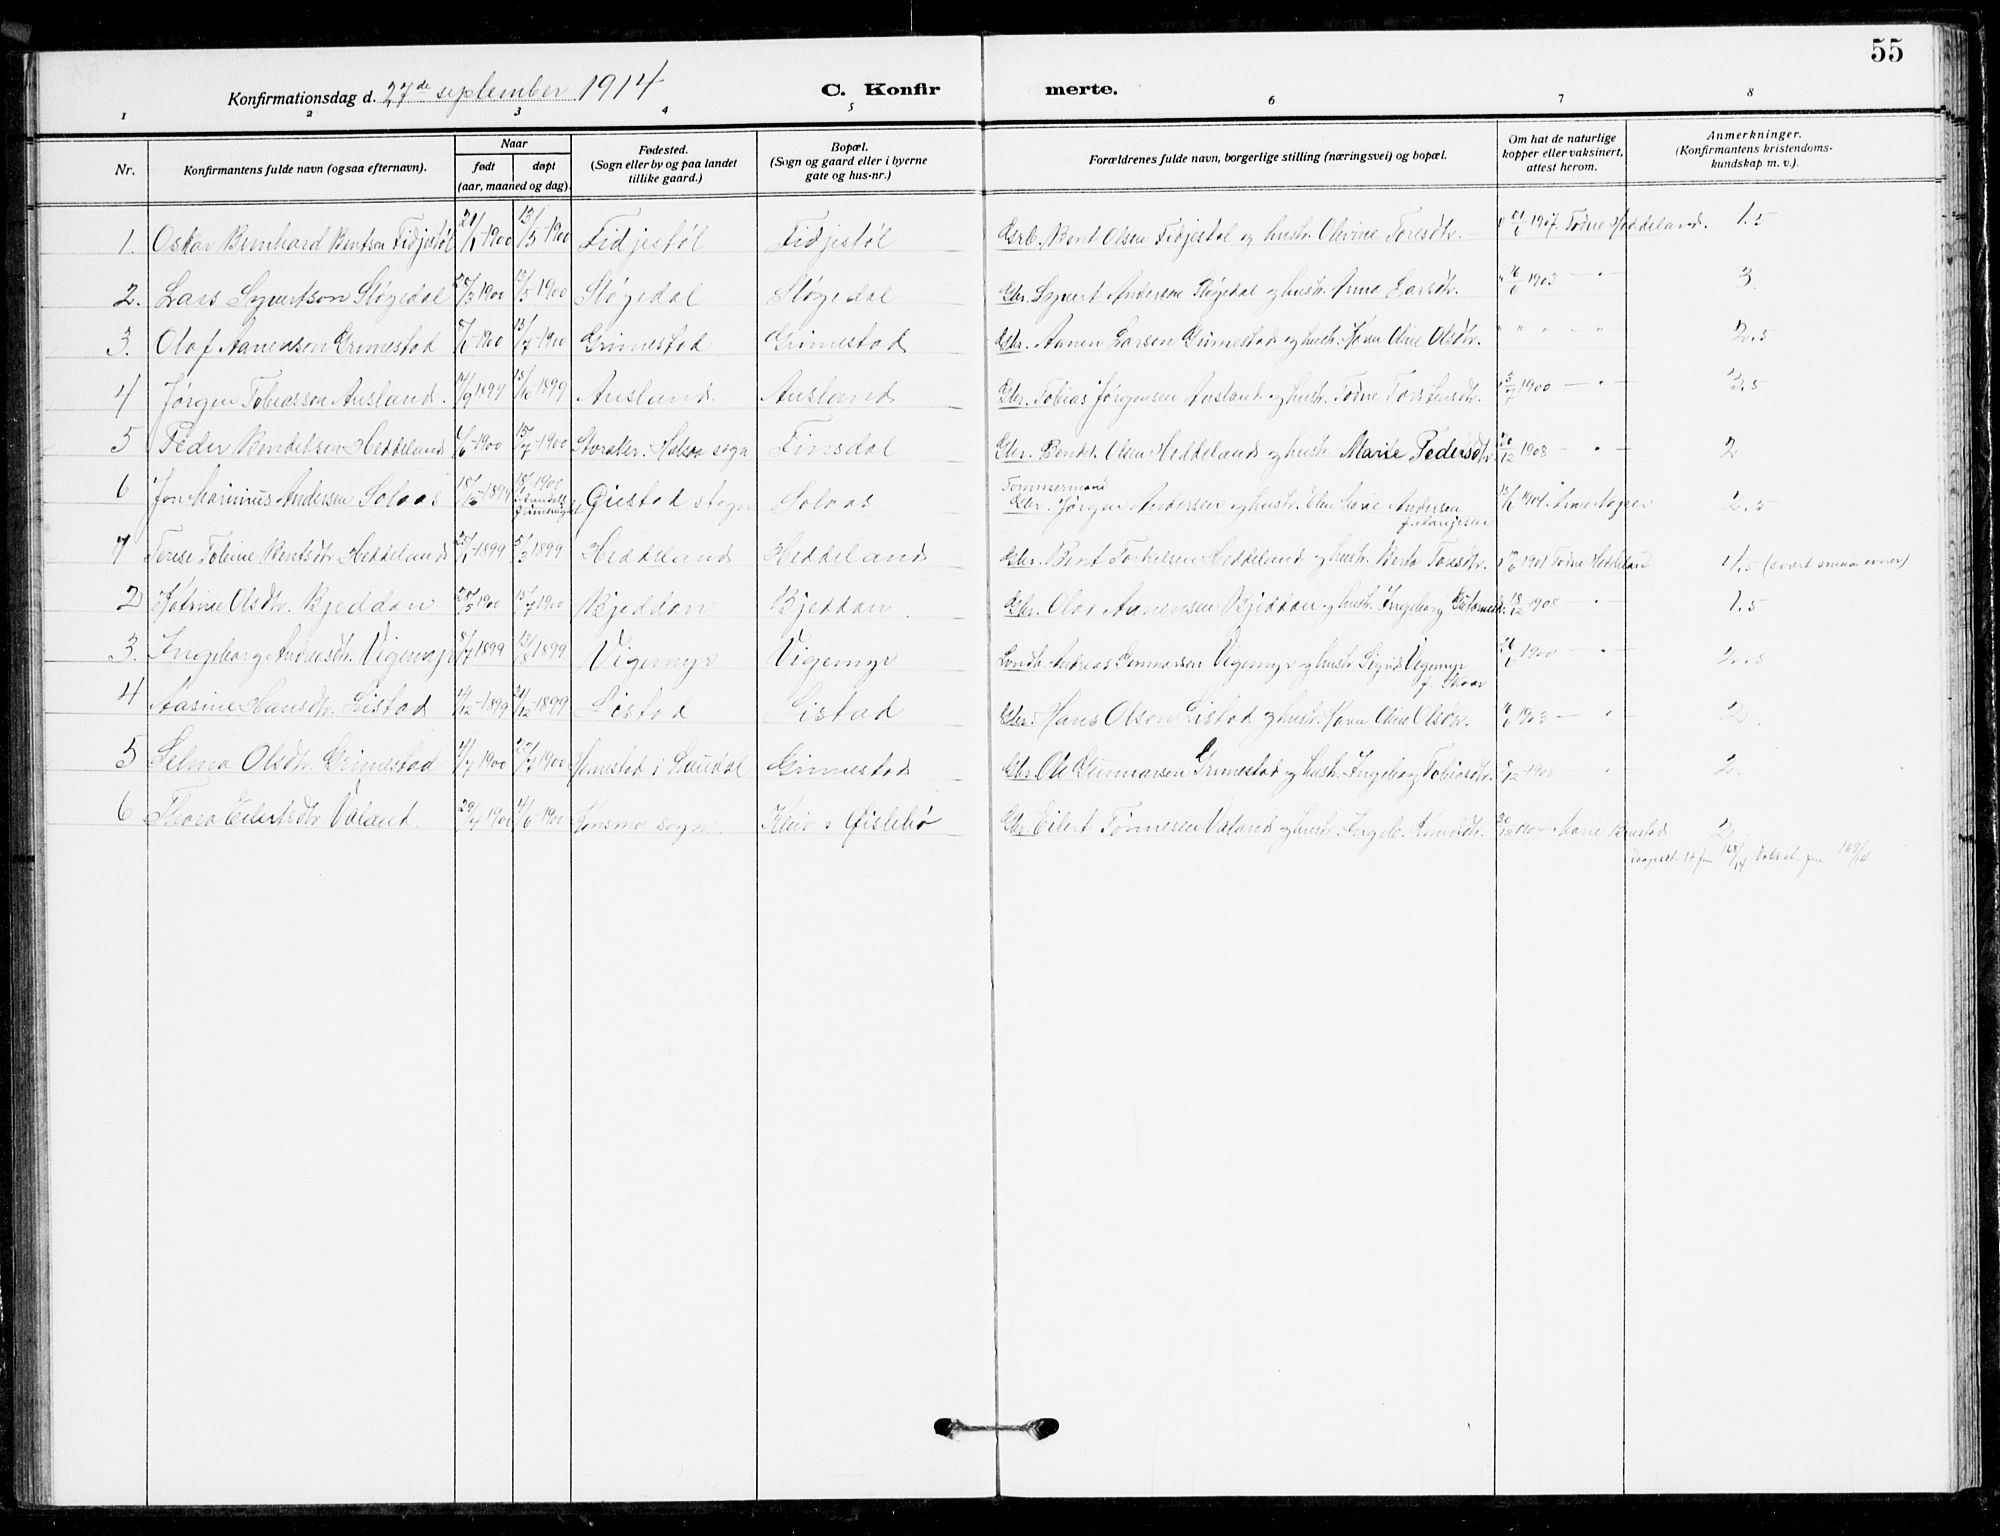 55
Konfirmationsdag d. 27de september 1914
C. Konfir merte.
1 2 3 4 5 6 7 8
Nr.
Konfirmantens fulde navn (ogsaa efternavn).
Naar
født
døpt
(aar, maaned og dag).
Fødested.
(Sogn eller by og paa landet
tillike gaard.)
Bopæl.
(Sogn og gaard eller i byerne
gate og hus-nr.)
Forældrenes fulde navn, borgerlige stilling (næringsvei) og bopæl.
Om hat de naturlige
kopper eller vaksinert,
attest herom.
Anmerkninger.
(Konfirmantens kristendoms-
kundskap m. v.).
1. Oskar Bernhard Bentsen Fidjestøl 21/1 1900 13/5 1900 Fidjestøl Fidjestøl Grb. Bent Olsen Fidjestøl og hustr. Olivine Toresdtr. 1907 Tørne Heddeland. 1.5
2. Lars Syvertson Støgedal /3 1900 13/5 1900 Støgedal Støgedal Gbr. Syvert Andersen Støgedal og hustr. Anna Larsdtr. 1903 — " — 3.
3. Olaf Aanensen Grimestad 1900 15/7 1900 Grimestad Grimestad Gbr. Aanen Larsen Grimestad og hustr. Karen Oline Olsdtr. " " " — " 2.5
4 Jørgen Tobiassen Ausland. /9 1899 1899 Ausland Ausland Gbr. Tobias Jørgensen Ausland og hustr. Tørne 1900 — " — 3.5
5 Peder Bendiksen Heddeland 6/6 1900 15/7 1900 Halsaa sogn Finsdal Gbr. Olsen Heddeland og hustr. Marie Pedersdtr. 20/12 1908 — " — 2
6 Jon Marinius Andersen Solaas 1899 1900 Øiestad sogn Solaas Tømmermand
Gbr. Jørgen Andersen og hustr. Elen Marie Andersen 1904 2.5
7 Terese Tobine Bentsdtr. Heddeland 1899 5/3 1899 Heddeland Heddeland Gbr. Bent Torkelsen Heddeland og hustr. Berta Toresdtr. 1901 Tørne Heddeland 1.5 (svært smaa evner)
2 Katrine Olsdtr. Bjeddan /5 1900 15/7 1900 Bjeddan Bjeddan Gbr. Olav Aanensen Bjeddan og hustr. Ingeborg 18/12 1908 — " — 1.5
3. Ingeborg Vigemyr 8/7 1899 13/8 1899 Vigemyr Vigemyr Andreas Gunnarsen Vigemyr og hustr. Sigrid Vigemyr
f. Skaar 1900 — " — 2.5
4 Aasine Hansdtr. Listad /12 1899 /12 1899 Listad Listad Gbr. Hans Olsen Listad og hustr. Karen Oline Olsdtr. 1903 — " 2.
5 Selma Olsdtr. Grimestad /7 1900 1900 i Laudal Grimestad Gbr. Ole Gunnarsen Grimestad og hustr. Ingeborg Tobiasdtr. /12 1908 " 2.
6 Thora Eilertsdtr. Valand 29/4 1900 1900 Konsmo sogn Øislebø Gbr. Eilert Tønnesen Valand og hustr. Ingeb. Knudsdtr. 30/12 1904 Marie 2